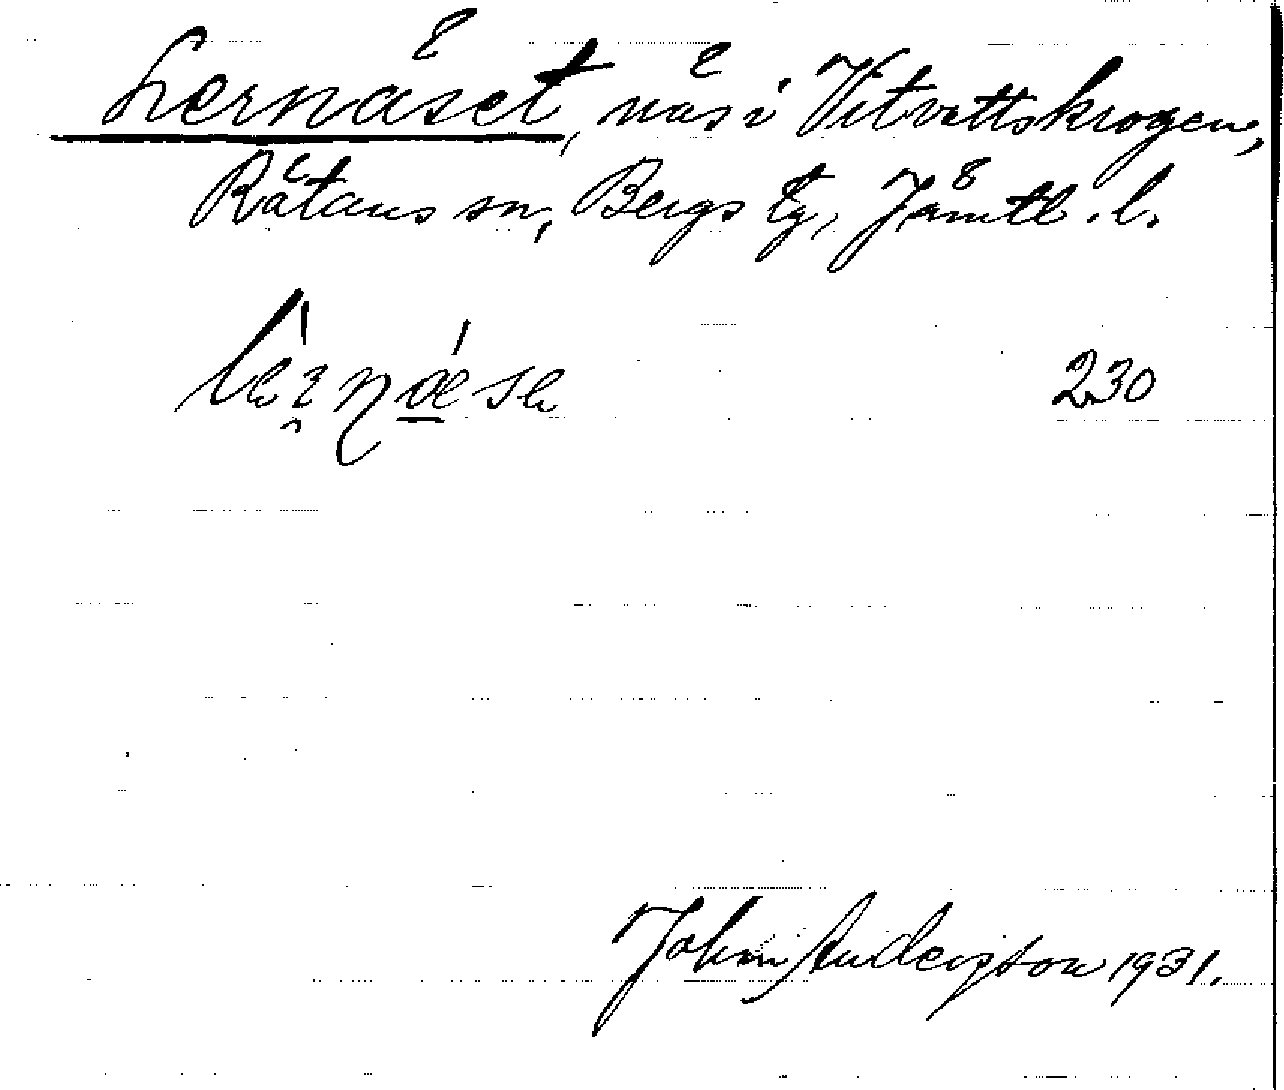 Lernäset, näs i Vitvattskrogen,
Rätans sn, Bergs tg, Jämtl. l.
230
John Anderson 1931.